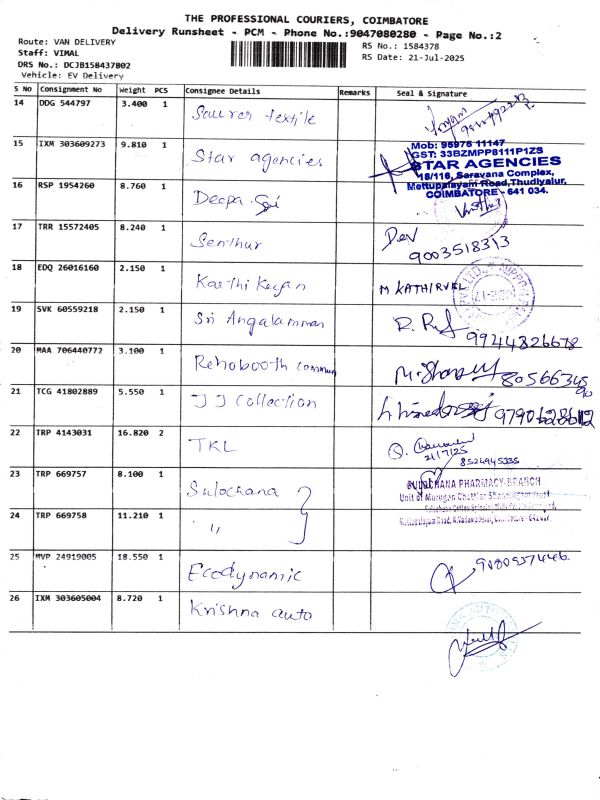 THE PROFESSIONAL COURIERS, COIMBATORE
Delivery Runsheet - PCM - Phone No.:9047080280 - Page No.:2
Route: VAN DELIVERY
Staff: VIMAL
DRS No.: DCJB158437802
Vehicle: EV Delivery
RS No.: 1584378
RS Date: 21-Jul-2025
S No Consignment No Weight PCS Consignee Details Remarks Seal & Signature
14 DDG 544797 3.400 1 Saurer textile
15 IXM 303609273 9.810 1 Star agencies
Mob: 95976 11147
GST: 33BZMPP8111P1ZS
STAR AGENCIES
18/116, Saravana Complex,
Mettupalayam Road, Thudiyalur,
COIMBATORE - 641 034.
16 RSP 1954260 8.760 1 Deepa Sai
17 TRR 15572405 8.240 1 Senthur Dev
9003518313
18 EDQ 26016160 2.150 1 Karthi Keyan M KATHIRVEL
19 SVK 60559218 2.150 1 Sri Angalamman
9944326678
20 MAA 706440772 3.100 1 Rehobooth
21 TCG 41802889 5.550 1 JJ Collection
22 TRP 4143031 16.820 2 TKL
21/7/25
8524945335
23 TRP 669757 8.100 1 Sulochana
SULOCHANA PHARMACY-BRANCH
24 TRP 669758 11.210 1 ,,
25 MVP 24919005 18.550 1 Ecodynamic
26 IXM 303605004 8.720 1 Krishna auto